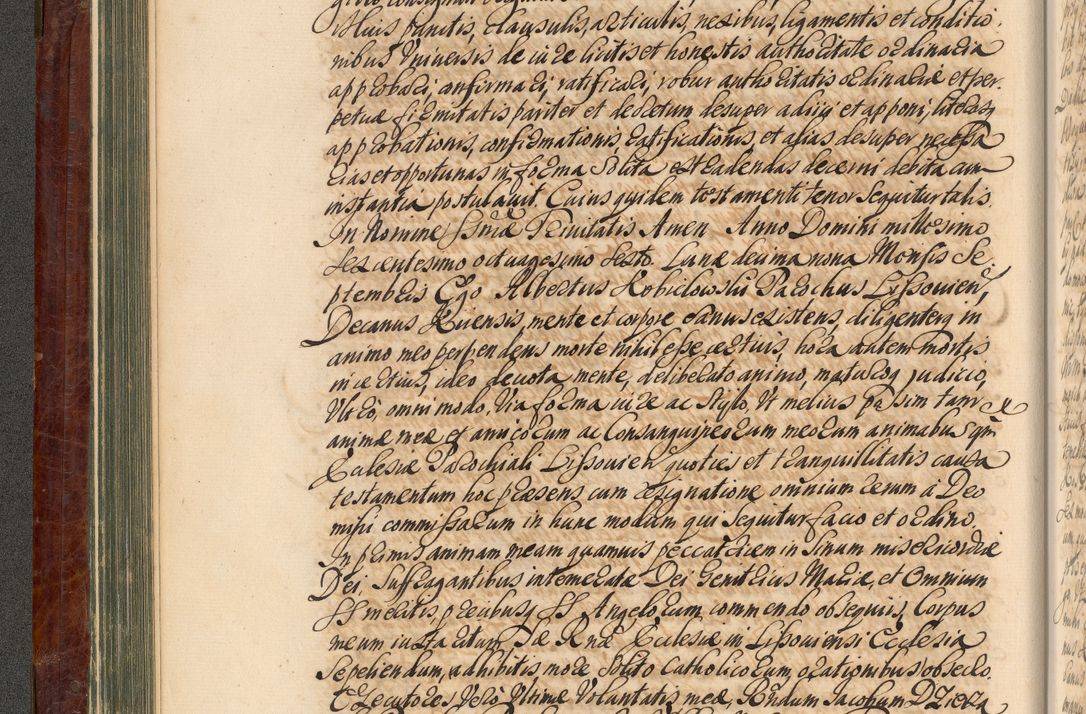 illius punctis, clausulis, articulis, nexibus, ligamentis et conditio,
nibus Universis de iure licitis et honestis authoritate ordinaria
approbari, confirmari, ratificari, robur authoritatis ordinariæ et per,
petuæ firmitatis pariter et decretum desuper adiici et apponi, literasq
approbationis, confirmationis ratificationis, et alias desuper necessa
rias et opportunas in forma Solita extradendas decerni debita cum
instantia postulauit. Cuius quidem testamenti tenor Sequitur talis.
In Nomine SSmæ Trinitatis Amen Anno Domini millesimo
Sexcentesimo octuagesimo Sexto. Lunæ decima nona Mensis Se,
ptembris Ego Albertus Kobielowski Parochus Lissouien,
Decanus Kiiensis, mente et corpore Sanus existens, diligenterq in
animo meo perpendens morte nihil esse certius, hora autem mortis
incertius, ideo deuota mente, deliberato animo, maturoq judicio,
Vltro, omni modo, Via forma iure ac Stylo, Vt melius possim tam
animæ meæ et amicorum ac Consanguineorum meorum animabus qm
Ecclesiæ Parochiali Lissouien quoties et tranquillitatis causa
testamentum hoc præsens cum designatione omnium rerum à Deo
mihi commissarum in hunc modum qui Sequitur facio et ordino.
In primis animam meam quamuis peccatricem in Sinum misericordiæ
Dei, Suffragantibus intemeratæ Dei Genitricis Mariæ, et Omnium
SS meritis, precibusq SS Angelorum commendo obsequiis, Corpus
meum iuxta ritum Ræ Ecclesiæ in Lissouiensi Ecclesia
Sepeliendum, adhibitis more Solito Catholicorum, orationibus obsecro.
Executores Verò Vltimæ Voluntatis meæ, Rndum Jacobum